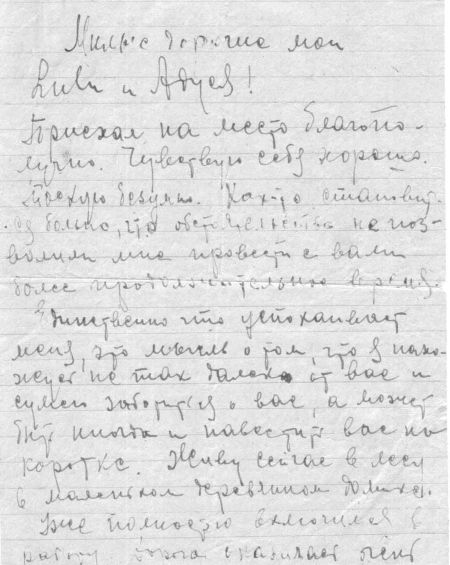 Милые дорогие мои
Lubu и Адуся!
Приехал на место благопо-
лучно. Чувствую себя хорошо.
Тоскую безумно. Как-то становит-
ся больно, что обстоятельства не поз-
волили мне провести с вами
более продолжительное время.
Единственно что успокаивает
меня, это мысль о том, что я нахо-
жусь не так далеко от вас и
сумею заботиться о вас, а может
быть иногда и навестить вас на
коротке. Живу сейчас в лесу
в маленьком деревянном домике.
Уже полностью включился в
работу. оказалась очень